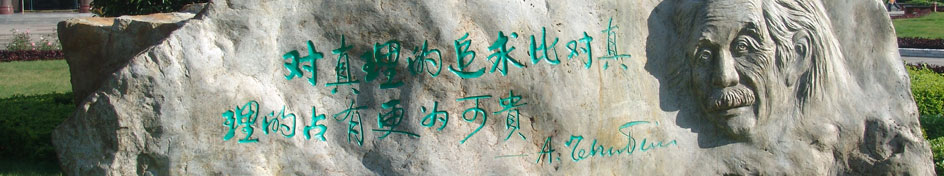 对真理的追求比对真
理的占有更为可贵